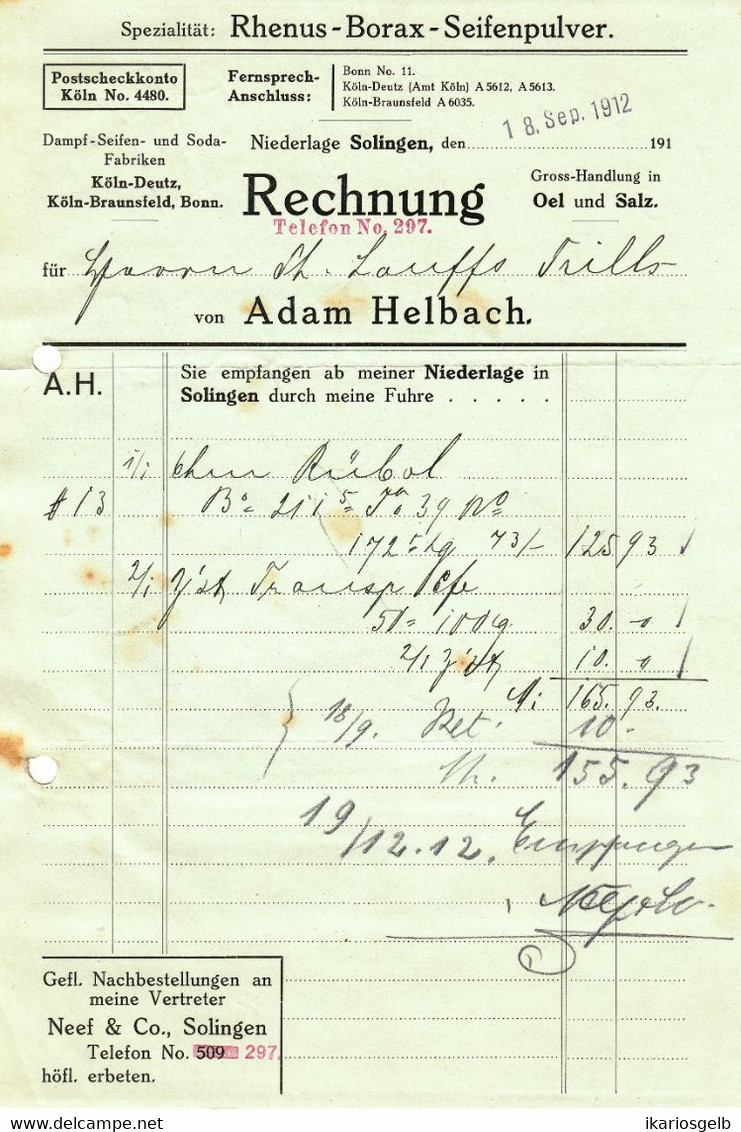 Spezialität: Rhenus-Borax-Seifenpulver.
Postscheckkonto
Köln No. 4480.
Fernsprech-
Anschluss:
Bonn No. 11.
Köln-Deutz (Amt Köln) A 5612, A 5613.
Köln-Braunsfeld A 6035.
18. Sep. 1912
Dampf-Seifen- und Soda-
Fabriken
Köln-Deutz,
Köln-Braunsfeld, Bonn.
Niederlage Solingen, den 191
Rechnung
Telefon No. 297.
Gross-Handlung in
Oel und Salz.
für Herrn Lauffs Trills
von Adam Helbach.
A.H.
Sie empfangen ab meiner Niederlage in
Solingen durch meine Fuhre . . . . .
1/1 Rüböl
# 13 Bo 211 5 Ta 39 No
172 5 kg 73/- 125 93
2/1 Transp
50= 100kg 30. -
2/1 10. -
M: 165. 93.
18/9. Ret. 10.-
155. 93
19/12. 12. Empfangen
Gefl. Nachbestellungen an
meine Vertreter
Neef & Co., Solingen
Telefon No. 509 297.
höfl. erbeten.
ikariosgelb